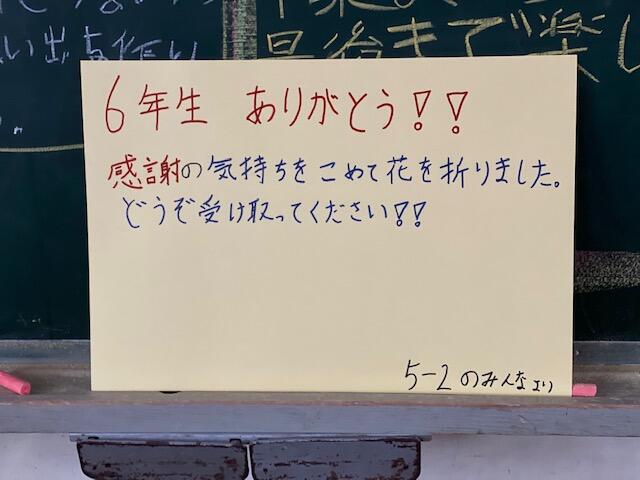 い出点作り
最後まで楽し
6年生 ありがとう!!
感謝の気持ちをこめて花を折りました。
どうぞ受け取ってください!!
5-2のみんなより